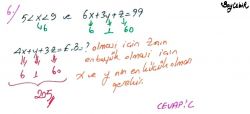 6/ 5<x<9 ve 6x+3y+z=99
46 6 1 60
4x+y+3z=E.B.? olması için z nin
6 1 60 en büyük olması için
x ve y nin en küçük olması
205 gerekir.
CEVAP: C